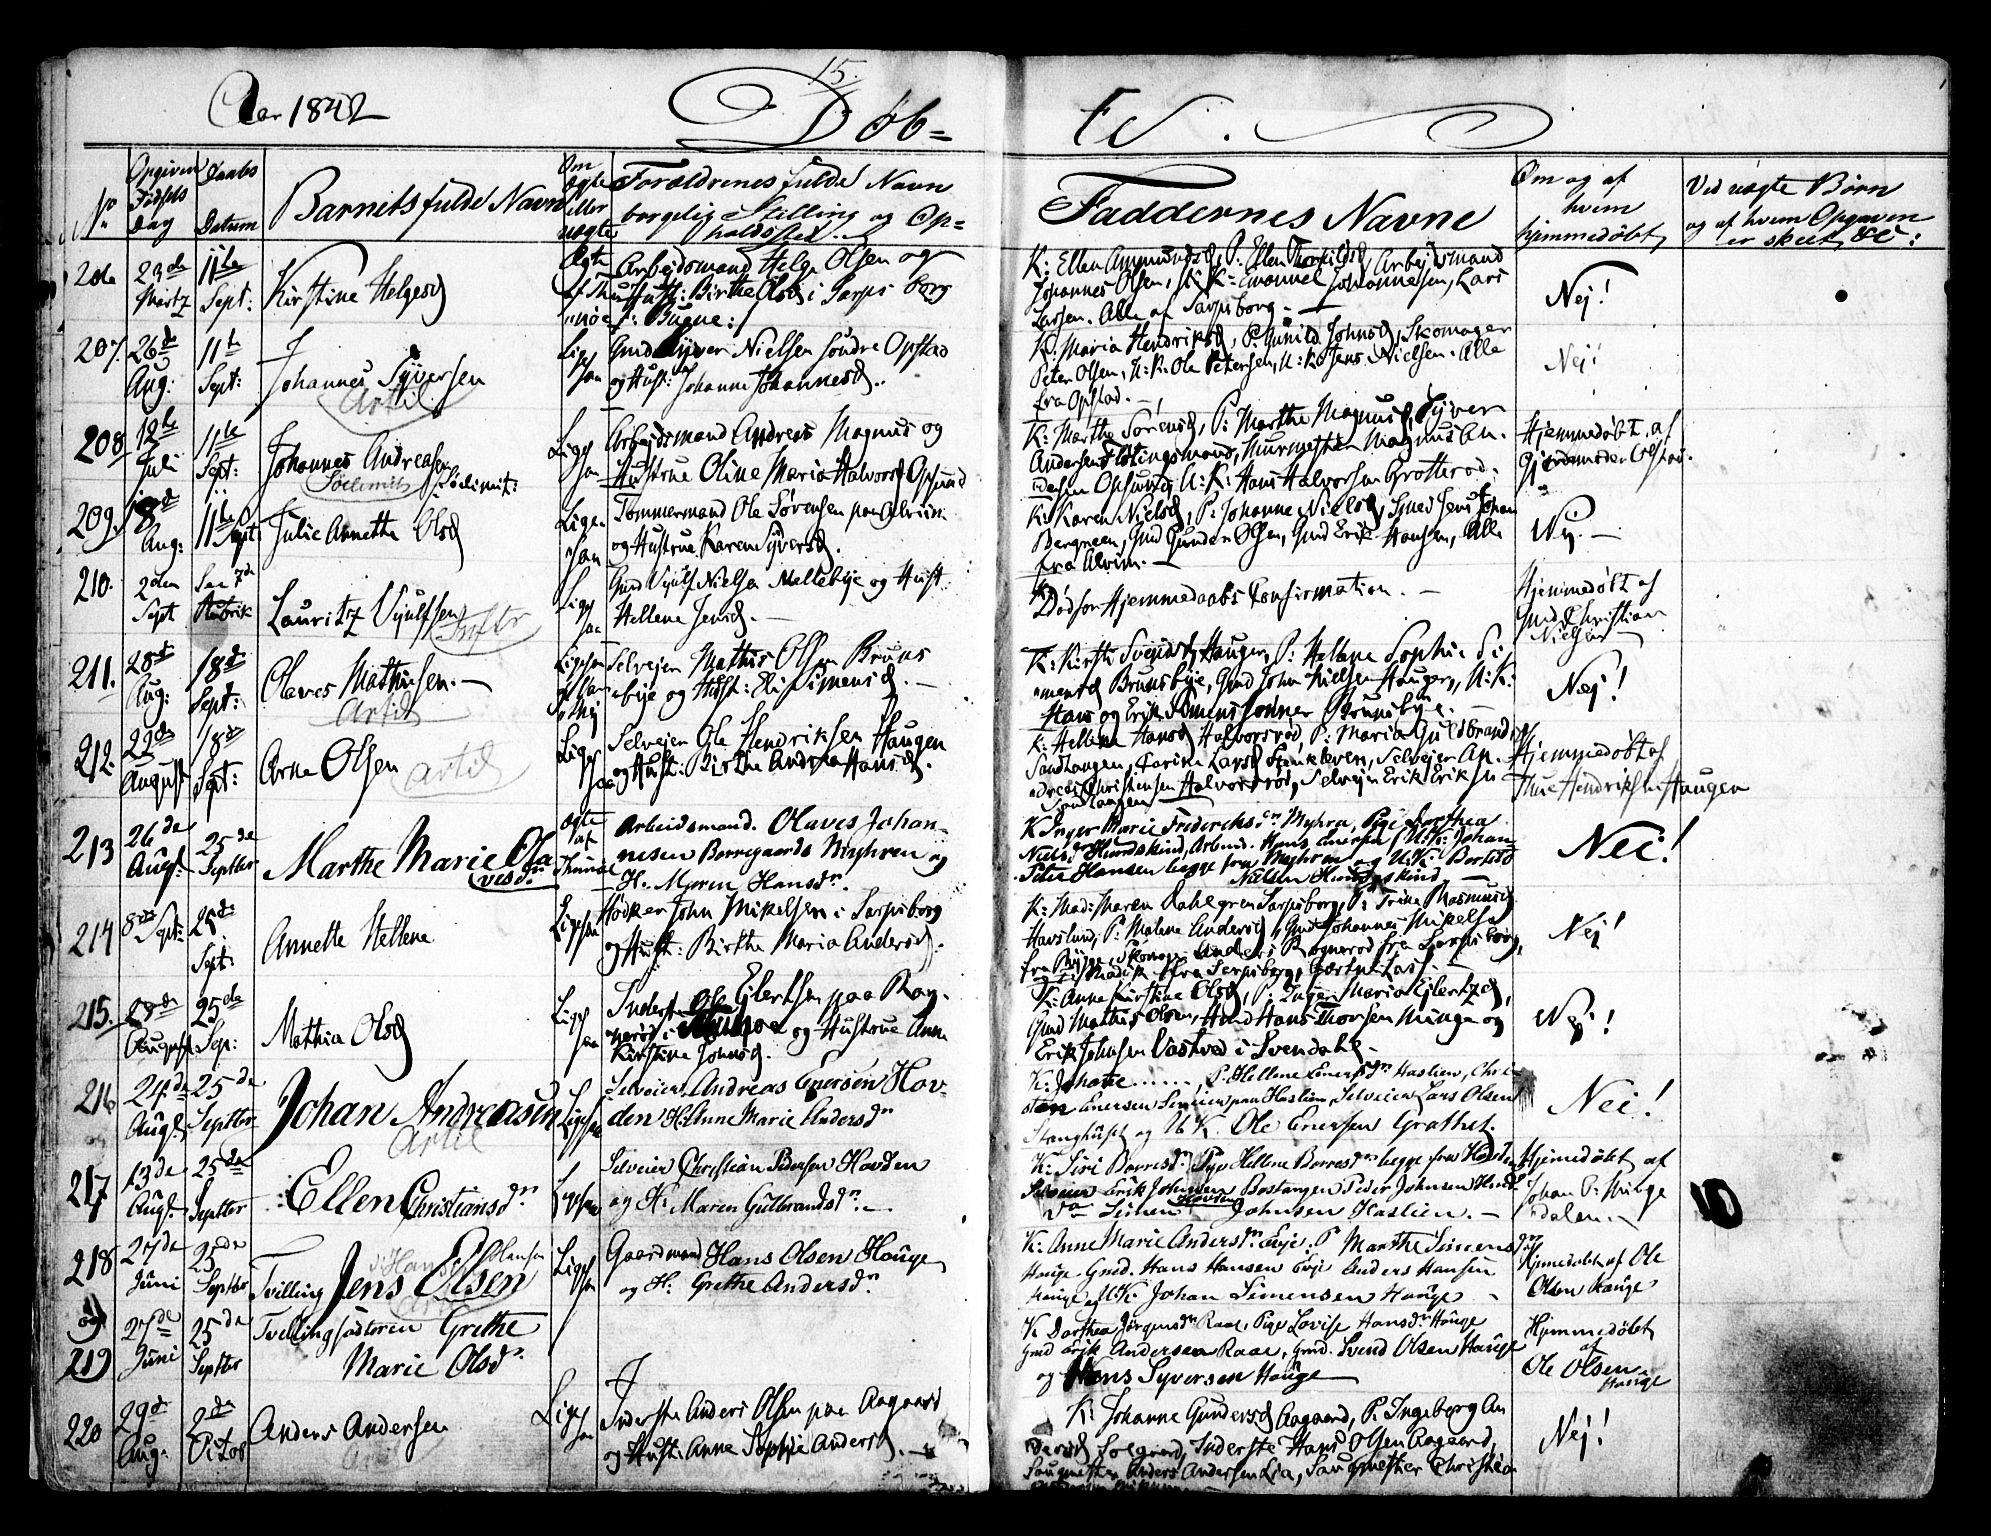 15.
Aar 1842 Døb= te.
No Opgiven Fødsels Dag Daabs Datum Barnets fulde Navn Om ægte eller uægte Forældrenes fulde Navn borgelig Stilling og Op= holdssted. Faddernes Navne Om og af hvem hjemmedøbt Ved uægte Børn og af hvem Opgaven er skeet &c:
23de Martz 11te Sept: Kirstine Helgesd Ægte Arbejdsmand Helge Olsen og
Hust: Birthe Olsd i Sarpsborg
K: Ellen Ammundsd, P: Ellen Arbejdsmand
Johannes Olsen, U: K: Emanuel Johannesen, Lars
Larsen. Alle af Sarpsborg. Nej!
207. 26de Aug: 11te Sept: Johannes Syversen Ligesaa Gmd Syver Nielsen søndre Opstad
og Hust: Johanne Johannesd.
K: Maria Hendriksd, P: Gunild Johnsd, Skomager
Peter Olsen, U: K: Ole Petersen, U: K: Jens Nielsen. Alle
fra Opstad. Nej!
208 12te Juli 11te Sept: Johannes Andreasen Ligesaa Arbejdsmand Andreas Magnus og
Hustrue Oline Maria Halvorsd Opsund
K: Marthe Sørensd, P: Marthe Magnusd, Syver
Andersen Murmester Magnus An-
dersen Opsund, U: K: Hans Halvorsen Grotterød. Hjemmedøbt af
209. 18de Aug: 11te Sept: Julie Annette Olsd Ligesaa Tømmermand Ole Sørensen paa Alvim
og Hustrue Karen Syversd.
K: Karen Nielsd, P: Johanne Nielsd, Smed Jens Johan
Bergreen, Gmd Gunder Olsen, Gmd Erik Hansen, Alle
fra Alvim. Nej.
210. 2den Sept See 7de Rubrik Lauritz Vyulfsen Ligesaa Gmd Vyulf Nielsen Mellebye og Hust
Hellene Jensd.
Død før Hjemmedaabs Confirmation. Hjemmedøbt af
Gmd Christian
Nielsen
211. 28de Aug: 18de Sept: Olaves Mathisen. Ligesaa Selvejer Mathis Olsen Bruns
bye og Hust: Eli Simensd.
K: Kirsti Svendsd Hauger, P: Hellene Sophie Si
mensd Brunsbye, Gmd John Nielsen Hauger, U: K:
Hans og Erik Simenssønner Brunsbye. Nej!
212. 22de August 18de Sept: Arne Olsen Artid Ligesaa Selvejer Ole Hendriksen Haugen
og Hust: Birthe Andrea Hansd.
K: Hellene Hansd Halvorsrød, P: Maria Guldbrandsd
Sandtangen, Karine Larsd Stenkleven, Selvejer An-
dreas Christensen Halvorsrød, Selvejer Erik Eriksen
Sandtangen Hjemmedøbt af
Thue Hendriksen Haugen
213 26de Augst 25de Septbr Marthe Marie Ola
vesdr. ægte Arbeidsmand. Olaves Johan-
nesen Borregaards Myhren og
H. Maren Hansdr.
K Inger Marie Frederiksdr Myhra, Pige Dorthea
Nielsdr Hundskind, Arbmd. Hans Enersen, U. K. Johan
Peter Hansen begge fra Myhren og U. K. Bertel
Nielsen Hundskind Nei!
214 8de Sept: 25de Sept: Annette Hellene Ligesaa Høker John Mikelsen i Sarpsborg
og Hust: Birthe Maria Andersd.
K: Mad: Maren Dahlgren Sarpsborg, P: Trine Rasmusd
Hafslund, P: Malene Andersd, Gmd Johannes Mikelsen
Nej!
215. 28de August 25de Sep: Mathia Olsd Ligesaa Inderst Ole Ejlertsen paa Rog-
og Hustrue Anne
Kirstine Johnsd.
K: Anne Kirstine Olsd, P: Inger Maria Ejlertsd,
Gmd Mathis Olsen, Gmd Hans Thorsen Minge og
Erik Johnsen Vastved i Svendahl. Nej!
216 24de Augst 25de Septbr Johan Andreassen Artid Ligesaa Selveier Andreas Enersen Hov-
den H: Anne Marie Andersdr
K: Johane ......, P. Hellene Enersdr Haslien, Chri-
sten Enersen Haslien, Selveier Lars Olsen
Stanghuset og U K. Ole Enersen Grathet. Nei!
217 13de Augst 25de Septbr Ellen Christiansdr Ligesaa Selveier Christian Pedersen Hovden
og H: Maren Gulbrandsdr.
K: Siri Borresdr, Pige Hellene Borresdr begge fra Hovden
Selveier Erik Johnsen Bostangen Peder Johnsen
Simen Johnsen Haslien. Hjemedøbt af
Johan P. Minge
dalen. 10
218 27de Juni 25de Septbr Tvilling Jens Olsen Ligesaa Gaardmand Hans Olsen Hauge
og H: Grethe Andersdr
K: Anne Marie Andersdr P Marthe Simensdr
Hauge Gmd. Hans Hansen Anders Hansen
Hauge og U K: Johan Simensen Hauge Hjemedøbt af Ole
Olsen Hauge
og
219 27de Juni 25de Septbr Tvillingsøsteren Grethe
Marie Olsdr.
K. Dorthea Jørgensdr Raae, Pige Lovise Hansdr Hauge
Gmd Erik Andersen Raae, Gmd. Svend Olsen Hauge
og Hans Syversen Hauge Hjemmedøbt
af
Ole Olsen
Hauge
220 29de Aug: 2den Octob Anders Andersen Ligesaa Inderste Anders Olsen paa Aagaard
og Hust: Anne Sophie Andersd.
K: Johanne Gundersd Aagaard, P: Ingeborg An
dersd Solgaard, Inderste Hans Olsen Aagaard,
Saugmester Anders Andersen Lia, Saugmester Christian Nej!